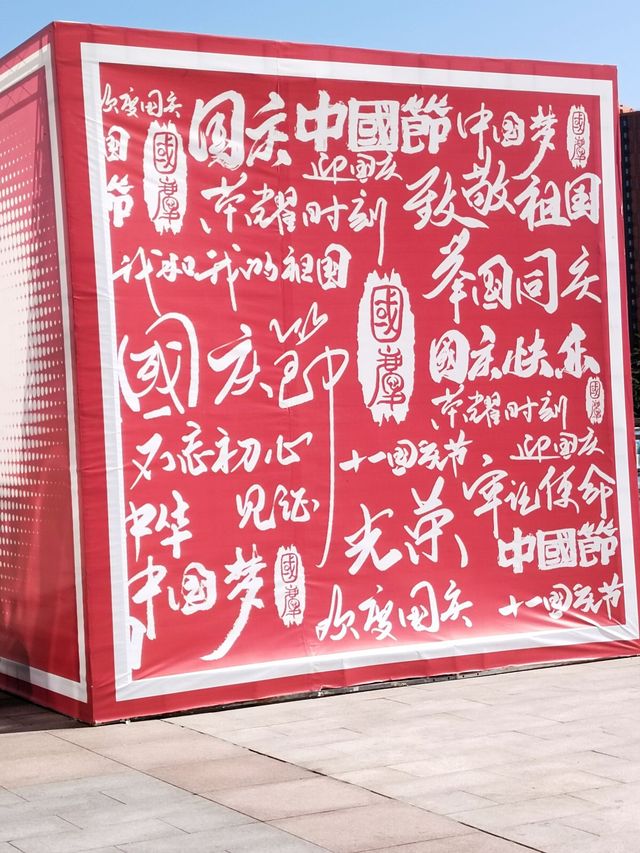 欢度国庆
国庆
中國節
中国梦
迎国庆
国節
荣耀时刻
致敬祖国
我和我的祖国
举国同庆
國庆節
国庆快乐
荣耀时刻
不忘初心
十一国庆节
迎国庆
见证
中华
光荣
牢记使命
中國節
中国梦
欢度国庆
十一国庆节